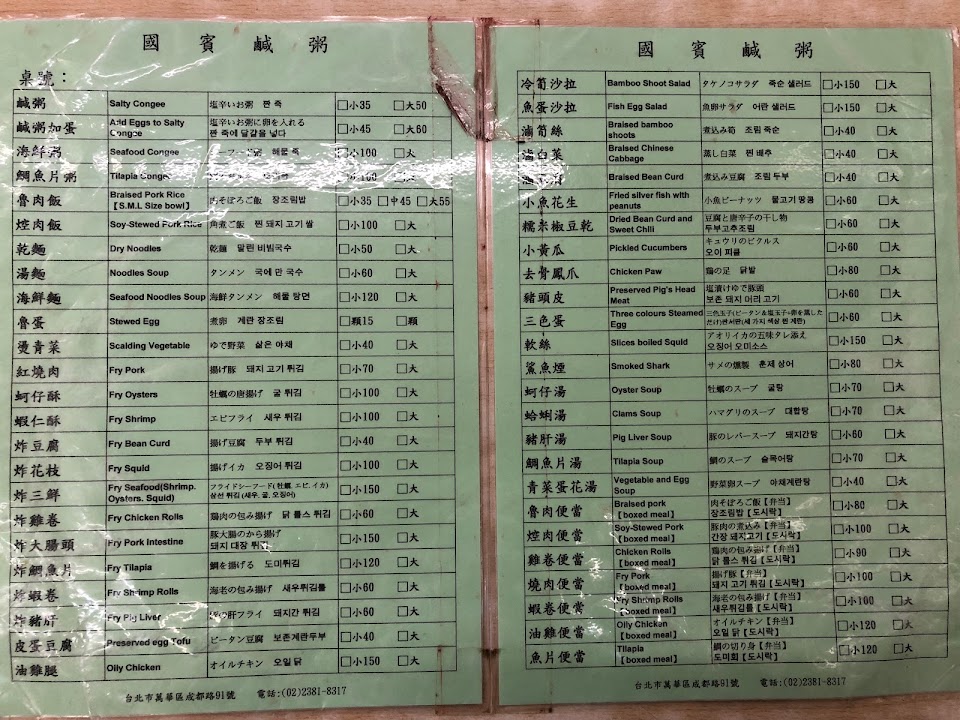 國賓鹹粥
桌號：
鹹粥 Salty Congee 塩辛いお粥 짠 죽 □小35 □大50
鹹粥加蛋 Add Eggs to Salty Congee 塩辛いお粥に卵を入れる 짠 죽에 달걀을 넣다 □小45 □大60
海鮮粥 Seafood Congee シーフード粥 해물 죽 □小100 □大
鯛魚片粥 Tilapia Congee □小100 □大
魯肉飯 Braised Pork Rice【S.M.L Size bowl】 肉そぼろご飯 장조림밥 □小35 □中45 □大55
焢肉飯 Soy-Stewed Pork Rice 角煮ご飯 찐 돼지 고기 쌀 □小100 □大
乾麵 Dry Noodles 乾麺 말린 비빔국수 □小50 □大
湯麵 Noodles Soup タンメン 국에 만 국수 □小60 □大
海鮮麵 Seafood Noodles Soup 海鮮タンメン 해물 탕면 □小120 □大
魯蛋 Stewed Egg 煮卵 계란 장조림 □顆15 □顆
燙青菜 Scalding Vegetable ゆで野菜 삶은 야채 □小40 □大
紅燒肉 Fry Pork 揚げ豚 돼지 고기 튀김 □小70 □大
蚵仔酥 Fry Oysters 牡蠣の唐揚げ 굴 튀김 □小100 □大
蝦仁酥 Fry Shrimp エビフライ 새우 튀김 □小100 □大
炸豆腐 Fry Bean Curd 揚げ豆腐 두부 튀김 □小40 □大
炸花枝 Fry Squid 揚げイカ 오징어 튀김 □小100 □大
炸三鮮 Fry Seafood(Shrimp. Oysters. Squid) フライドシーフード(牡蠣, エビ, イカ) 삼선 튀김 (새우, 굴, 오징어) □小150 □大
炸雞卷 Fry Chicken Rolls 鶏肉の包み揚げ 닭 롤스 튀김 □小60 □大
炸大腸頭 Fry Pork Intestine 豚大腸のから揚げ 돼지 대장 튀김 □小150 □大
炸鯛魚片 Fry Tilapia 鯛を揚げる 도미튀김 □小120 □大
炸蝦卷 Fry Shrimp Rolls 海老の包み揚げ 새우튀김롤 □小60 □大
炸豬肝 Fry Pig Liver の肝フライ 돼지간 튀김 □小60 □大
皮蛋豆腐 Preserved egg Tofu ピータン豆腐 보존계란두부 □小40 □大
油雞腿 Oily Chicken オイルチキン 오일 닭 □小150 □大
台北市萬華區成都路91號 電話:(02)2381-8317
國賓鹹粥
冷筍沙拉 Bamboo Shoot Salad タケノコサラダ 죽순 샐러드 □小150 □大
魚蛋沙拉 Fish Egg Salad 魚卵サラダ 어란 샐러드 □小150 □大
滷筍絲 Braised bamboo shoots 煮込み筍 조림 죽순 □小40 □大
滷白菜 Braised Chinese Cabbage 蒸し白菜 찐 배추 □小40 □大
Braised Bean Curd 煮込み豆腐 조림 두부 □小40 □大
小魚花生 Fried silver fish with peanuts 小魚ピーナッツ 물고기 땅콩 □小60 □大
糯米椒豆乾 Dried Bean Curd and Sweet Chili 豆腐と唐辛子の干し物 두부고추조림 □小60 □大
小黃瓜 Pickled Cucumbers キュウリのピクルス 오이 피클 □小60 □大
去骨鳳爪 Chicken Paw 鶏の足 닭발 □小80 □大
豬頭皮 Preserved Pig's Head Meat 塩漬けゆで豚頭 보존 돼지 머리 고기 □小60 □大
三色蛋 Three colours Steamed Egg 三色玉子(ピータン&塩玉子+卵を蒸しただけ)찐서판(세 가지 색상 찐 계란) □小60 □大
軟絲 Slices boiled Squid アオリイカの五味タレ添え 오징어 오미소스 □小150 □大
鯊魚煙 Smoked Shark サメの燻製 훈제 상어 □小80 □大
蚵仔湯 Oyster Soup 牡蠣のスープ 굴탕 □小70 □大
蛤蜊湯 Clams Soup ハマグリのスープ 대합탕 □小70 □大
豬肝湯 Pig Liver Soup 豚のレバースープ 돼지간탕 □小60 □大
鯛魚片湯 Tilapia Soup 鯛のスープ 솔목어탕 □小70 □大
青菜蛋花湯 Vegetable and Egg Soup 野菜卵スープ 야채계란탕 □小40 □大
魯肉便當 Braised pork【boxed meal】 肉そぼろご飯【弁当】 장조림밥【도시락】 □小80 □大
焢肉便當 Soy-Stewed Pork【boxed meal】 豚肉の煮込み【弁当】 간장 돼지고기【도시락】 □小100 □大
雞卷便當 Chicken Rolls【boxed meal】 鶏肉の包み揚げ【弁当】 닭 롤스 튀김【도시락】 □小90 □大
燒肉便當 Fry Pork【boxed meal】 揚げ豚【弁当】 돼지 고기 튀김【도시락】 □小100 □大
蝦卷便當 Fry Shrimp Rolls【boxed meal】 海老の包み揚げ【弁当】 새우튀김롤【도시락】 □小100 □大
油雞便當 Oily Chicken【boxed meal】 オイルチキン【弁当】 오일 닭【도시락】 □小120 □大
魚片便當 Tilapia【boxed meal】 鯛の切り身【弁当】 도미회【도시락】 □小120 □大
台北市萬華區成都路91號 電話:(02)2381-8317